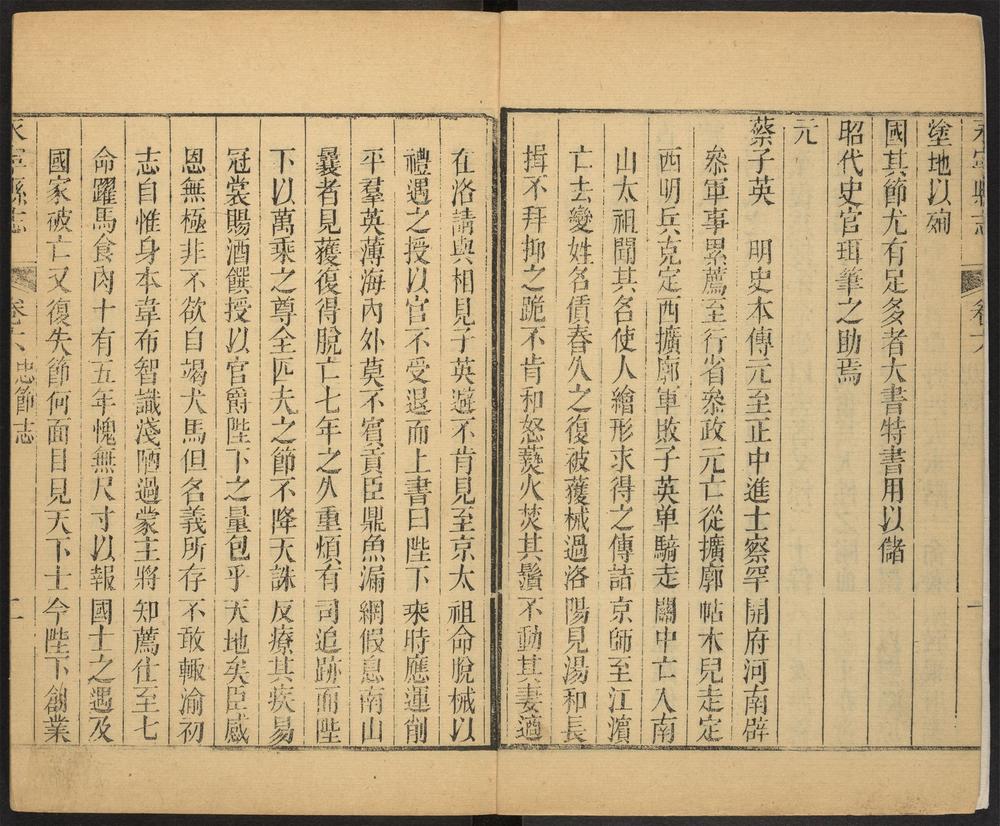 永寧縣志 卷六 一
塗地以殉
國其節尤有足多者大書特書用以儲
昭代史官珥筆之助焉
元
蔡子英 明史本傳元至正中進士察罕開府河南辟
叅軍事累薦至行省叅政元亡從擴廓帖木兒走定
西明兵克定西擴廓軍敗子英单騎走關中亡入南
山太祖聞其名使人繪形求得之傳詣京師至江濱
亡去變姓名賃舂久之復被獲械過洛陽見湯和長
揖不拜抑之跪不肯和怒爇火焚其鬚不動其妻適
在洛請與相見子英避不肯見至京太祖命脫械以
禮遇之授以官不受退而上書曰陛下乘時應運削
平羣英薄海內外莫不賓貢臣鼎魚漏網假息南山
曩者見獲復得脫亡七年之久重煩有司追跡而陛
下以萬乘之尊全匹夫之節不降天誅反療其疾易
冠裳賜酒饌授以官爵陛下之量包乎天地矣臣感
恩無極非不欲自竭犬馬但名義所存不敢輙渝初
志自惟身本韋布智識淺陋過蒙主將知薦仕至七
命躍馬食肉十有五年愧無尺寸以報國士之遇及
國家破亡又復失節何面目見天下士今陛下創業
永寧縣志 卷六 忠節志 二